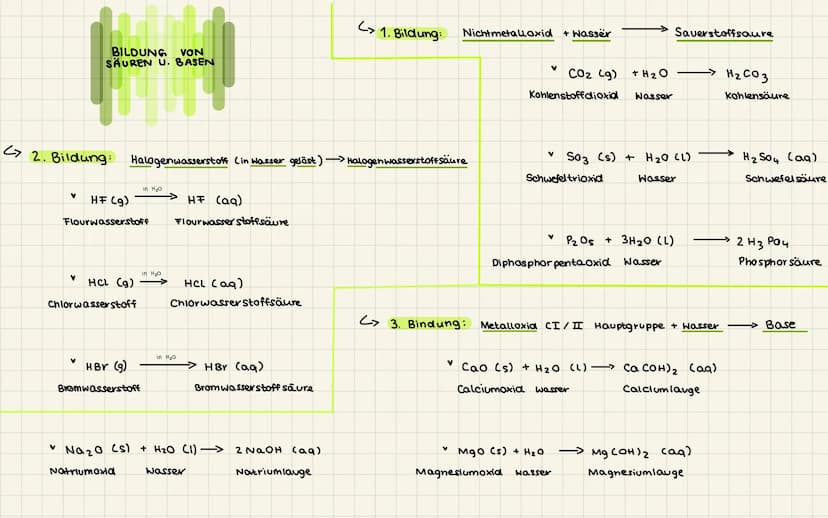 BILDUNG VON
SÄUREN U. BASEN
1. Bildung: Nichtmetalloxid + Wasser ⟶ Sauerstoffsäure
CO2 (g) + H2O ⟶ H2CO3
Kohlenstoffdioxid Wasser Kohlensäure
SO3 (s) + H2O (l) ⟶ H2SO4 (aq)
Schwefeltrioxid Wasser Schwefelsäure
P2O5 + 3H2O (l) ⟶ 2 H3PO4
Diphosphorpentaoxid Wasser Phosphorsäure
2. Bildung: Halogenwasserstoff (in Wasser gelöst) ⟶ Halogenwasserstoffsäure
HF (g) in H2O ⟶ HF (aq)
Flourwasserstoff Flourwasserstoffsäure
HCl (g) in H2O ⟶ HCl (aq)
Chlorwasserstoff Chlorwasserstoffsäure
HBr (g) in H2O ⟶ HBr (aq)
Bromwasserstoff Bromwasserstoffsäure
3. Bindung: Metalloxid (I/II Hauptgruppe + Wasser ⟶ Base
CaO (s) + H2O (l) ⟶ Ca(OH)2 (aq)
Calciumoxid Wasser Calciumlauge
Na2O (s) + H2O (l) ⟶ 2 NaOH (aq)
Natriumoxid Wasser Natriumlauge
MgO (s) + H2O ⟶ Mg(OH)2 (aq)
Magnesiumoxid Wasser Magnesiumlauge